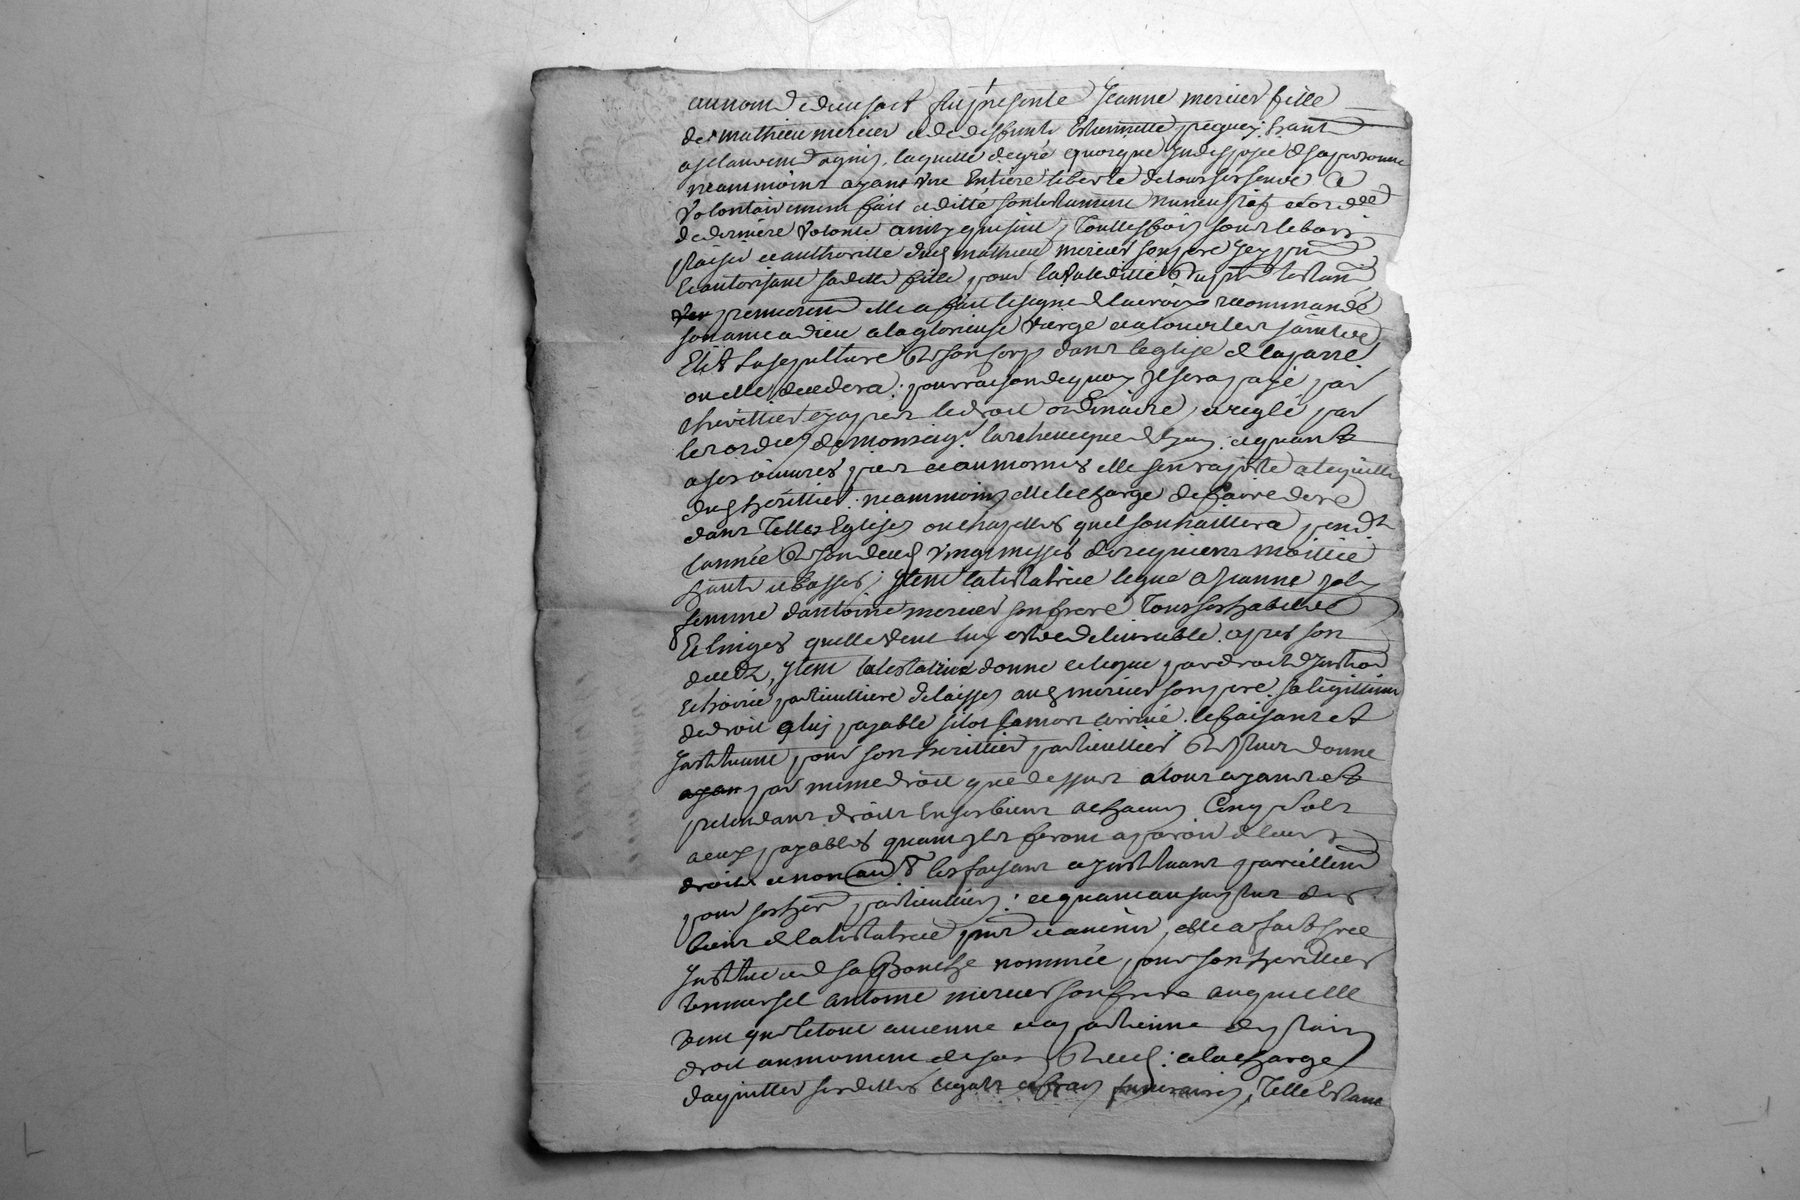 au nom de dieu soit fut presente Jeanne mercier fille
de mathieu mercier et de deffunte Estiennette
laquelle de gré quoyque Indisposée de sa personne
neanmoins ayant Une Entiere liberté de tous ses sens a
Volontairement fait et dicté son testament nuncupatif et ordce
de derniere Volonté ainsy que suit, Touttesfois sous le bon
plaisir et authorité dud mathieu mercier son pere Icy pnt
Et autorisant saditte fille pour la Validité du pnt testamt
premierem elle a fait le signe de la croix recommandé
son ame a dieu a la glorieuse Vierge et a tous les saints et
Elit La sepulture de son corps dans leglise de la parre
ou elle decedera, pour raison de quoy Il sera payé par
le droit ordinaire, et reglé par
les ordces de monseigr larcheveque de Lyon, et quant
a ses oeuvres pies et aumornes elle sen raporte a
dud heritier neanmoins elle le charge de faire dire
dans Telles Eglises ou chapelles quel souhaittera pendt
lannée de son deces Vingt messes de requiems moittié
hautes et basses, Item la testatrice legue a Jeanne
femme dantoine mercier son frere Tous ses habits
Et linges quelle Veut luy estre delivrable apres son
deceds, Item la testatrice donne et legue par droit dInstion
et hoirie particulliere delaisse aud mercier son pere sa legittime
de droit a luy payable sitost sa mort arrivée le faisant et
Instituant pour son heritier particullier De plus donne
par meme droit que dessus a tous ayants et
pretendants droits En ses biens a chacun Cinq sols
a eux payables quand Ils feront aparoir de leurs
droits et non aut les faisant et Instituant pareillem
pour ses hers particuliers, et quant au surplus des
biens de la testatrice pnts et avenir, elle a fait cree
Institue et de sa Bouche nommée pour son heritier
Universel antoine mercier son frere auquel elle
Veut que le tout avienne et apartienne de plain
droit au moment de son Deced: a la charge
daquitter ses dettes legats et frais funeraires, Telle Estant